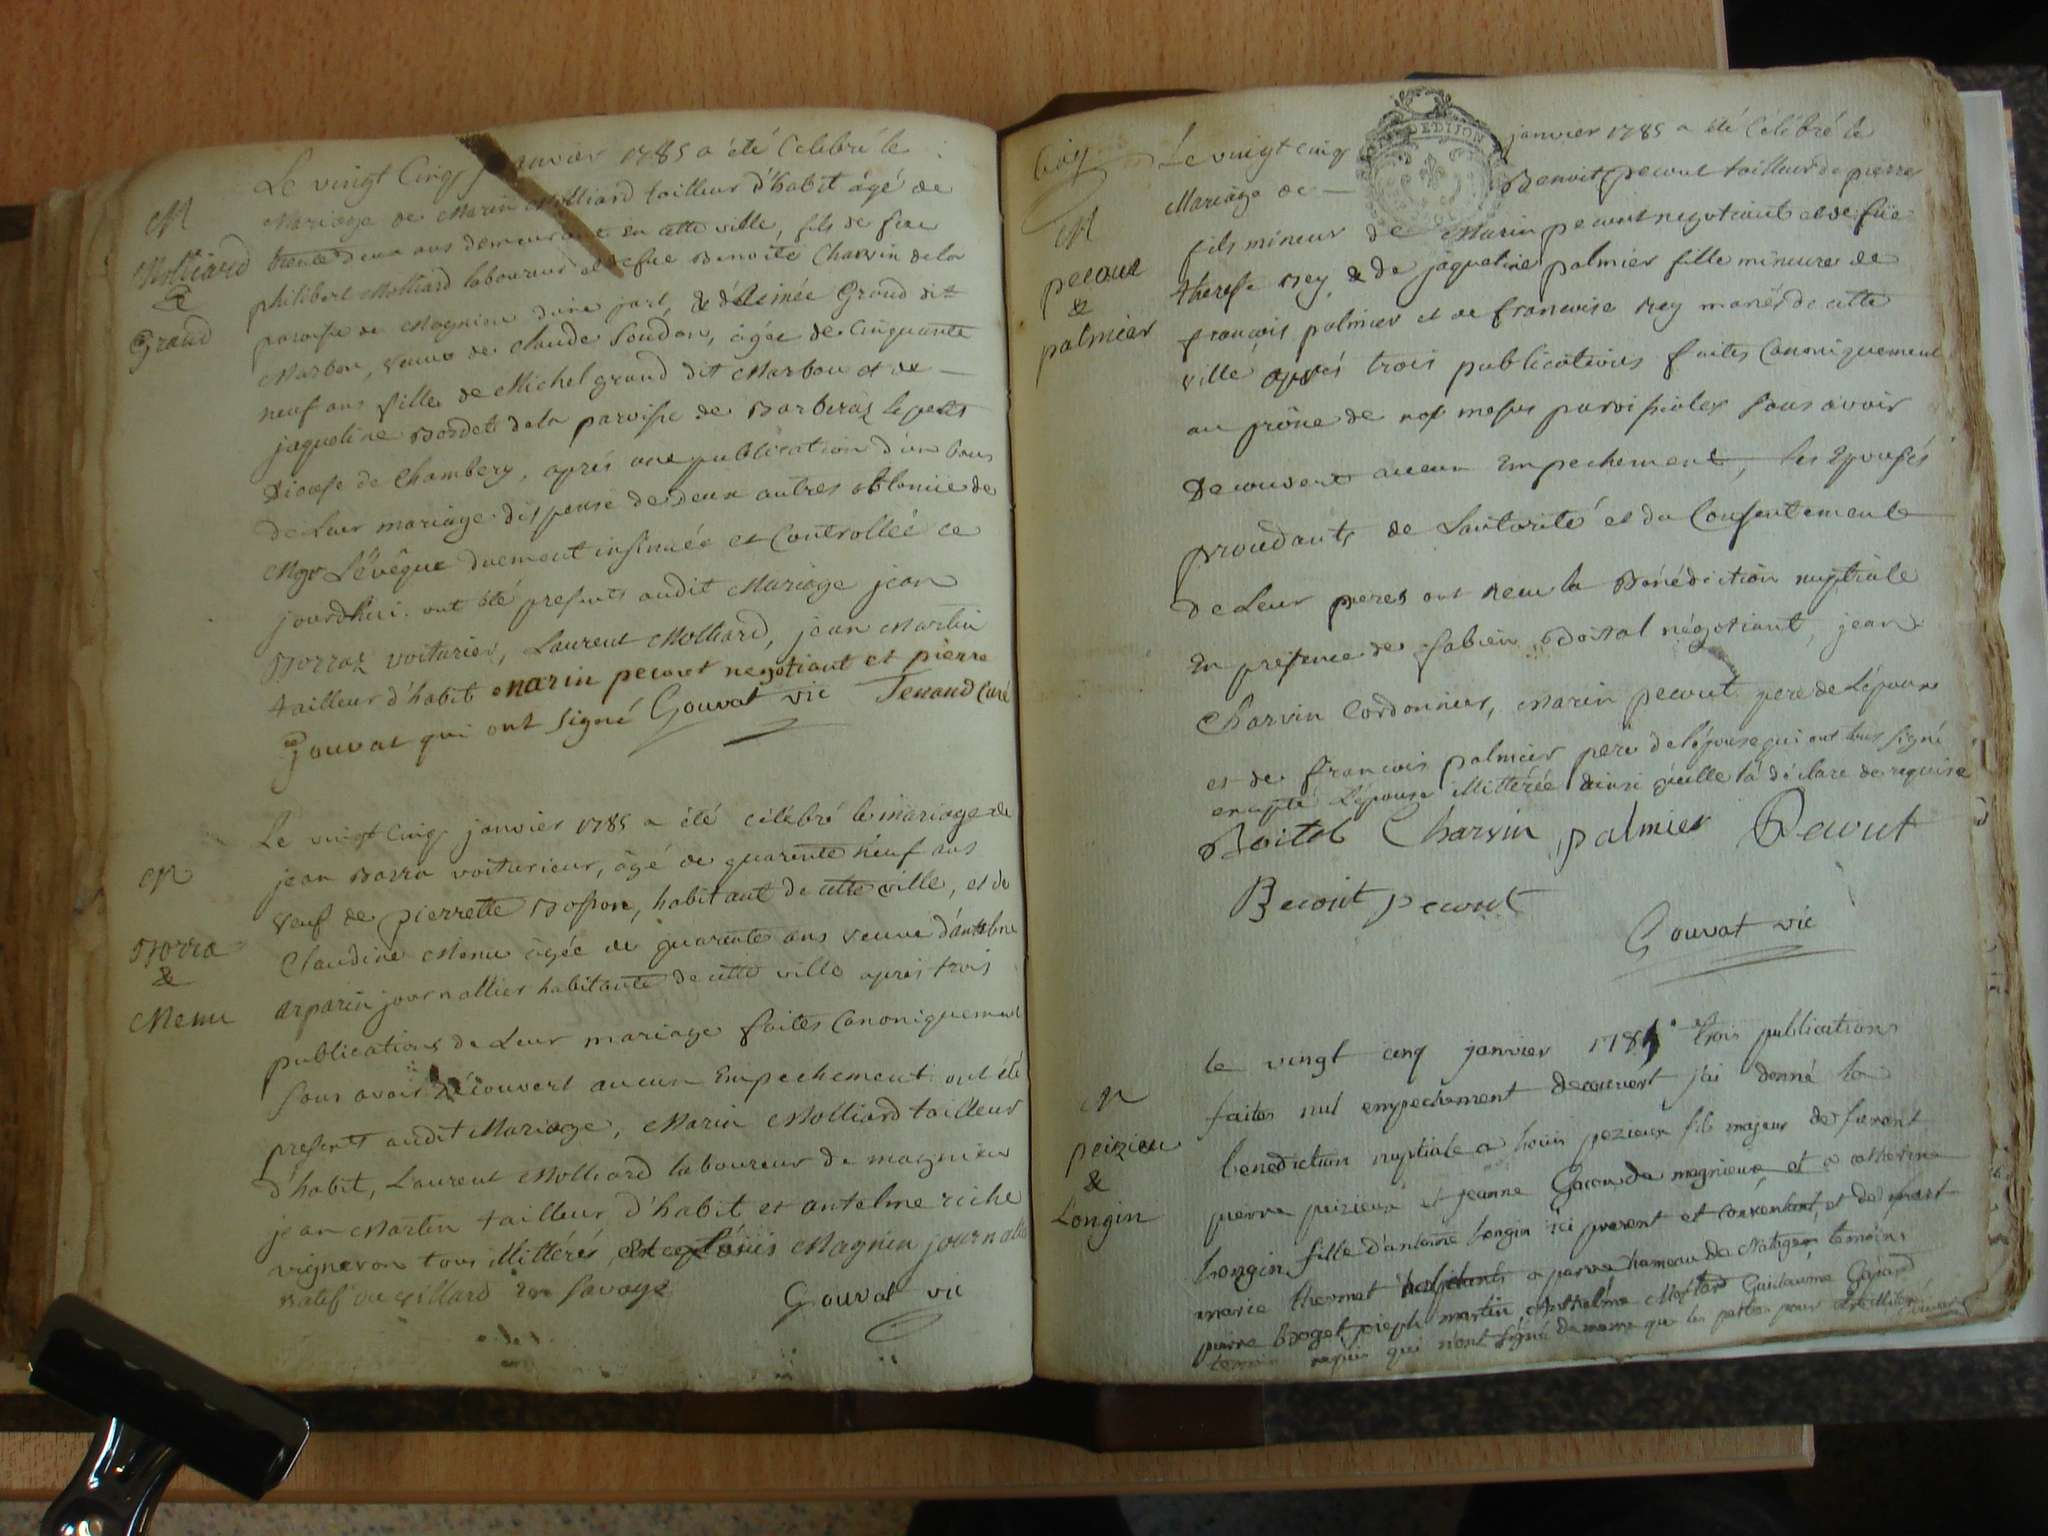 M
Molliard
&
Grand
Le vingt Cinq janvier 1785 a été Celebré le
Mariage de Marin Molliard tailleur d'habit âgé de
trente deux ans demeurant en cette ville, fils de feu
philibert Molliard laboureur et de fue Benoite Charvin de la
paroisse de Magnieu d'une part, & d'Aimée Grand dit
Marbon, veuve de Claude Soudan, âgée de Cinquante
neuf ans fille de Michel grand dit Marbou et de
jaqueline Bordet de la paroisse de Barberaz le petit
Diocese de Chambery, après une publication d'un bans
de Leur mariage dispense de deux autres obtenue de
Mgr L'évêque duement insinuée et Controllée ce
jourdhui. ont été presents audit Mariage jean
Borraz voiturier, Laurent Molliard, jean Martin
tailleur d'habit marin pecout negotiant et pierre
Gouvat qui ont signé Gouvat vic Tenand Curé
M
Borra
&
Menu
Le vingt Cinq janvier 1785 a été célébré le mariage de
jean Borra voiturieur, âgé de quarente neuf ans
veuf de pierrette Bosson, habitant de cette ville, et de
Claudine Menu âgée de quarente ans veuve d'antelme
arparin journallier habitante de cette ville après trois
publications de Leur mariage faites Canoniquement
sans avoir découvert aucun Empechement ont été
presents audit Mariage, Marin Molliard tailleur
d'habit, Laurent Molliard laboureur de magnieu
jean Martin tailleur d'habit et antelme riche
vigneron tous illittérés et Magnin journallier
natif du villard en Savoye
Gouvat vic
M
pecout
&
palmier
DE DIJON
Le vingt cinq janvier 1785 a été Célébré le
Mariage de Benoit pecout tailleur de pierre
fils mineur de Marin pecout negotiant et de füe
therese Rey, & de jaqueline palmier fille mineure de
françois palmier et de francoise Rey mariés de cette
ville après trois publications faites Canoniquement
au prône de nos messes paroissiales sans avoir
Decouvert aucun Empechement, les Epousés
procedants de Lautorité et du Consentement
de Leur peres ont recu la Bénédiction nuptiale
En presence de fabien Boital négotiant, jean
Charvin Cordonnier, Marin pecout pere de L'epoux
et de francois palmier pere de l'épouse qui ont tous signé
excepté L'épouse illitérée ainsi qu'elle l'a déclaré de requise
Boital Charvin palmier Pecout
Benoit pecout
Gouvat vic
M
peizieu
&
Longin
le vingt cinq janvier 1785 trois publications
faites nul empechement decouvert j'ai donné la
benediction nuptiale a louis pezieux fils majeur de furent
pierre peizieux et jeanne Gacon de magnieux et a catherine
Longin fille d'antoine longin ici present et consentant, et de
marie thermet habitants a parve hameau de Nattages temoins
pierre Boget, joseph martin Anthelme Mollard Guillaume
requis qui n'ont signé de meme que les parties pour etre illitérés